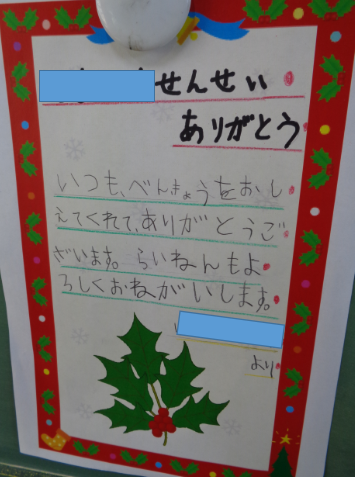 せんせい
ありがとう
いつも、べんきょうをおし
えてくれて、ありがとうご
ざいます。らいねんもよ
ろしくおねがいします。
より